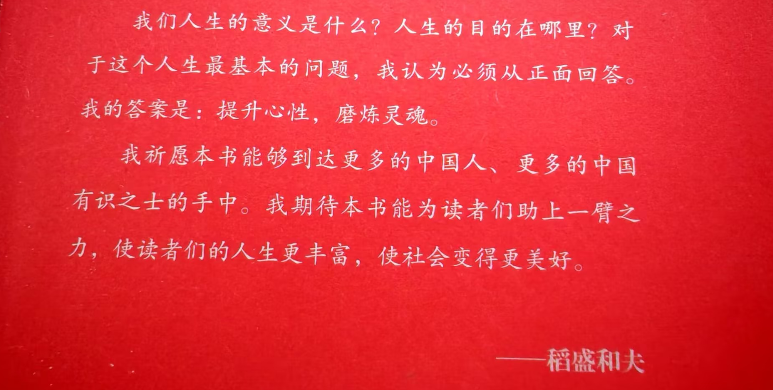 我们人生的意义是什么？人生的目的在哪里？对
于这个人生最基本的问题，我认为必须从正面回答。
我的答案是：提升心性，磨炼灵魂。
我祈愿本书能够到达更多的中国人、更多的中国
有识之士的手中。我期待本书能为读者们助上一臂之
力，使读者们的人生更丰富，使社会变得更美好。
——稻盛和夫